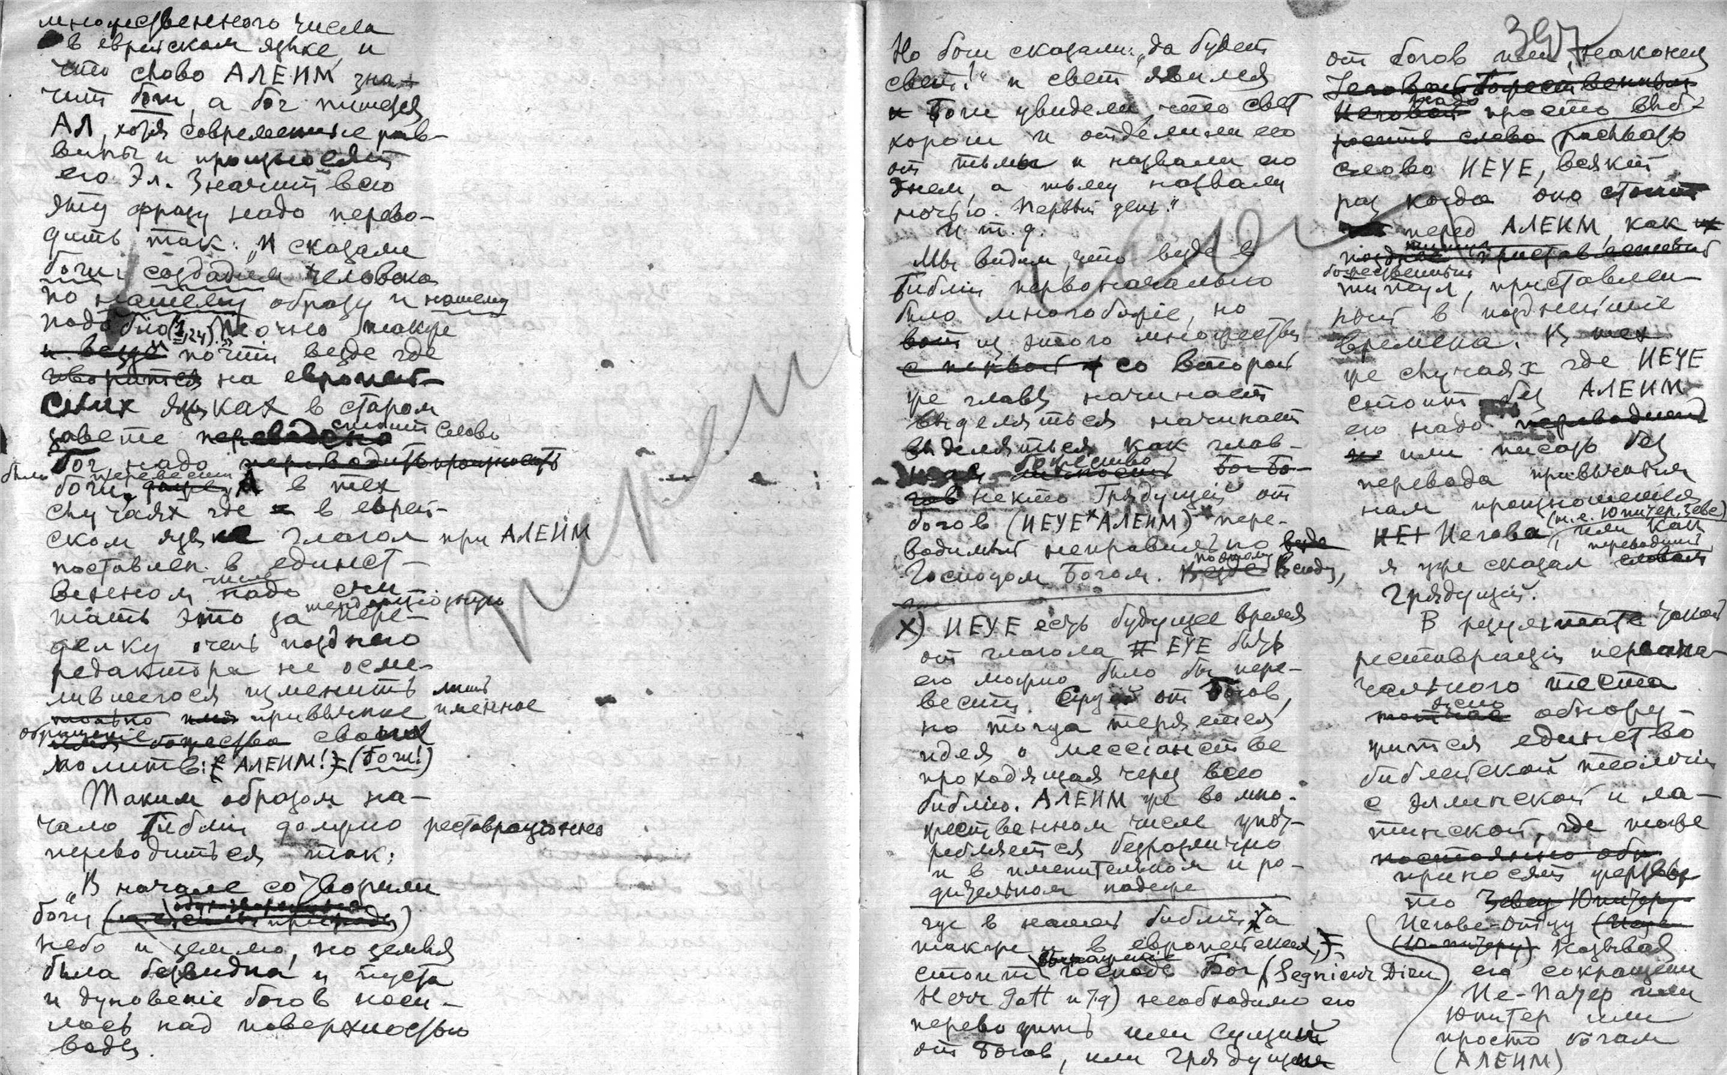 множественного числа
в еврейском языке, и
что слово АЛЕИМ зна-
чит боги, а бог пишется
АЛ, хотя современные рав-
вины и произносят
его Эл. Значит всю
эту фразу надо перево-
дить так: "И сказали
боги: создадим человека
по нашему образу и нашему
подобию (1,24)." Точно также
и везде почти везде где
говорится на европей-
ских языках в старом
завете переведено стоит слово
Бог надо
было перевести
боги, даже А в тех
случаях где в еврей-
ском языке глагол при АЛЕИМ
поставлен в единст-
венном числе надо счи-
тать это за тенденциозную пере-
делку очень позднего
редактора не осме-
лившегося изменить лишь
только имя привычное именное
обращение имя божества своих
молитв: АЛЕИМ! (Боги!)
Таким образом на-
чало Библии должно реставрационно
переводиться так:
"В начале сотворили
боги
небо и землю, но земля
была безвидна и пуста
и дуновение богов носи-
лось над поверхностью
воды.
397
Но боги сказали: "да будет
свет!" и свет явился
и Боги увидели что свет
хорош и отделили его
от тьмы и назвали его
днем, а тьму назвали
ночью. Первый день."
И т. д.
Мы видим, что везде в
Библии первоначально
было многобожіе, но
вот из этого множества
с первой со второй
же главы начинает
выделяться начинает
выделяться как глав-
ное божество Бог Бо-
гов некто Грядущій от
богов (ИЕУЕ* АЛЕИМ) пере-
водимый неправильно везде
Господом Богом. Везде поэтому Всюду,
х) ИЕУЕ есть будущее время
от глагола ЕУЕ быть
его можно было бы пере-
вести Сущій от Богов,
но тогда теряется
идея о мессіанстве
проходящая через всю
библию. АЛЕИМ же во мно-
жественном числе упот-
ребляется безразлично
и в именительном и ро-
дительном падеже
где в нашей библіи, а
также и в европейских,
стоит Господь Бог (Segnieur Dieu
Herr Gott и т д) необходимо его
переводить или Сущий
от Богов, или Грядущие
от богов или, наконец
Иеговой Божественным
Иеговой надо просто выб-
росить слово
слово ИЕУЕ, всякий
раз когда оно стоит
перед АЛЕИМ, как
божественный
титул, приставлен-
ный в позднейшіе
времена. В тех
же случаях где ИЕУЕ
стоит без АЛЕИМ
его надо переводить
или писать без
перевода привычным
нам произношением
Иегова (т.е. Юпитер, Зевс) или как
я уже сказал переводить словом
Грядущій.
В результате такой
реставраціи первона-
чального текста
ясно обнару-
жится единство
библейской теологіи
с эллинской и ла-
тинской, где тоже
постоянно
приносят жертвы
то Зевсу Юпитеру
Иегове-Отцу
(Ю-питеру) называя
его сокращенно
Ие-Патер или
Юпитер или
просто богам
(АЛЕИМ)